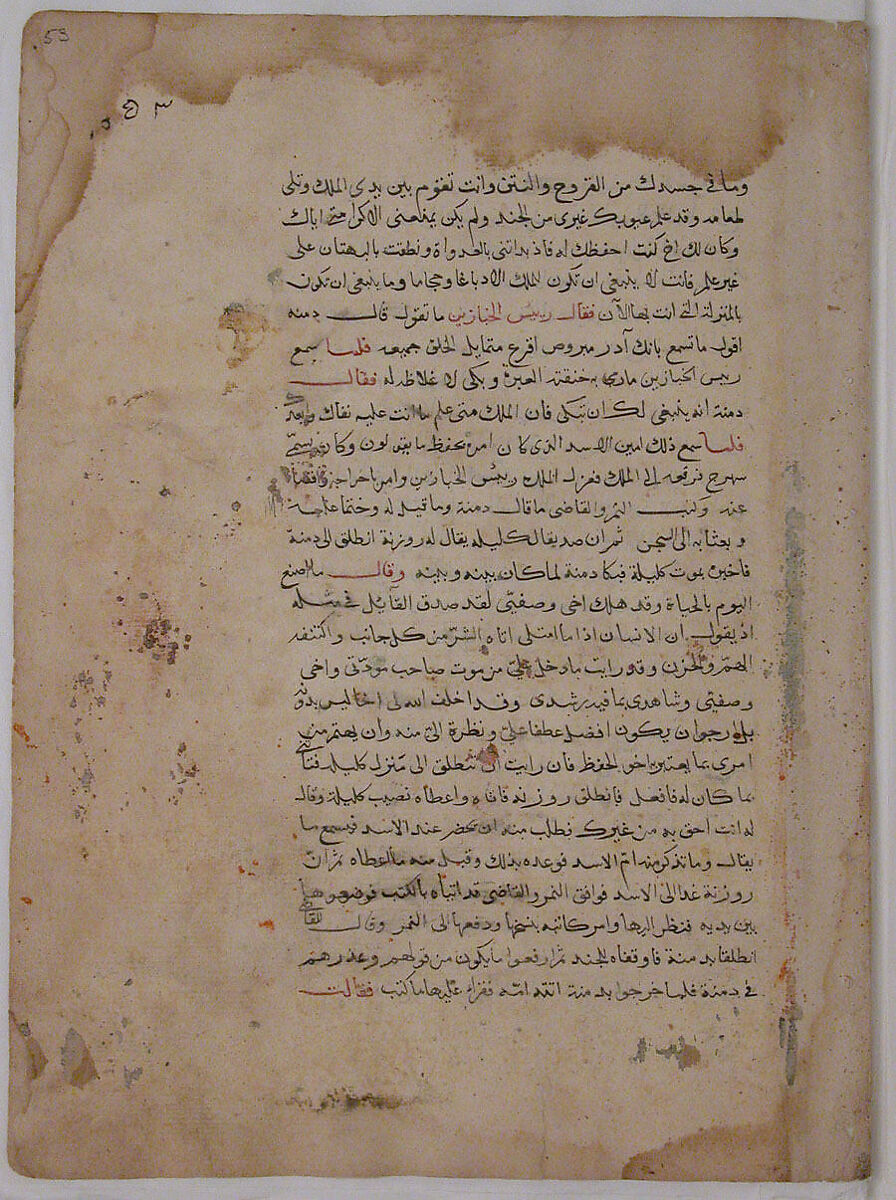 53
وما في جسدك من القروح والنتن وانت تقوم بين يدي الملك وتلى
لطعامه وقد علم عيوبك غيري من الجند ولم يكن يمنعني الاكرامتي اياك
وكان لك اخ كنت احفظك له فاذ بداتني بالعداوة ونطقت بالبهتان على
غير علم فانت لا ينبغي ان تكون الملك الادباغا وحجاما وما ينبغي ان تكون
بالمنزلة التي انت بها الآن فقال رييس الخبازين ما تقول قال دمنه
اقول ما تسمع بانك آدر مبروص اقرع متمايل الخلق جميعه فلما سمع
رييس الخبازين مارى به خنقته العبرة وبكى لا غلاظه له فقال
دمنة انه ينبغي لك ان تبكي فان الملك متى علم ما انت عليه نفاك وابعدك
فلما سمع ذلك امين الاسد الذي كان امره بحفظ ما يقولون وكان يسمى
سهرج فرفعه الى الملك فعزل الملك رييس الخبازين وامر باخراجه
عنه وكتب النمر والقاضي ما قال دمنة وما قيل له وختما عليه
وبعثا به الى السجن ثم ان صديقا لكليله يقال له روزنة انطلق الى دمنة
فاخبره بموت كليلة فبكا دمنة لما كان بينه وبينه وقال ما اصنع
اليوم بالحياة وقد هلك اخي وصفيي لقد صدق القايل في مثله
اذ يقول ان الانسان اذا ما ابتلى اتاه الشر من كل جانب واكتنفه
الهم والحزن وقد رايت ما دخل علي من موت صاحب مودتي واخي
وصفيي وشاهدي بما فيه رشدي وقد اخلف الله لي اخا ليس بدونه
بل ارجو ان يكون افضل عطفا علي ونظرة الي منه وان يهتم من
امري بما يعتبر به اخو الحفظ فان رايت ان تنطلق الى منزل كليله فتاتي
بما كان له فافعل فانطلق روزنه فاتاه واعطاه نصيب كليلة وقال
له انت احق به من غيرك فطلب منه ان يحضر عند الاسد فيسمع ما
يقال وما تذكر منه ام الاسد فوعده بذلك وقبل منه ما اعطاه ثم ان
روزنة غدا الى الاسد فوافق النمر والقاضي قد اتياه بالكتب فوضعوها
بين يديه فنظر اليها وامر كاتبه بنسخها ودفعها الى النمر وقال للقاضي
انطلقا بدمنة فاوقفاه للجند ثم ارفعوا ما يكون من قولهم وعذرهم
في دمنة فلما خرجوا بدمنة اتته امه فقراء عليها ما كتب فقالت